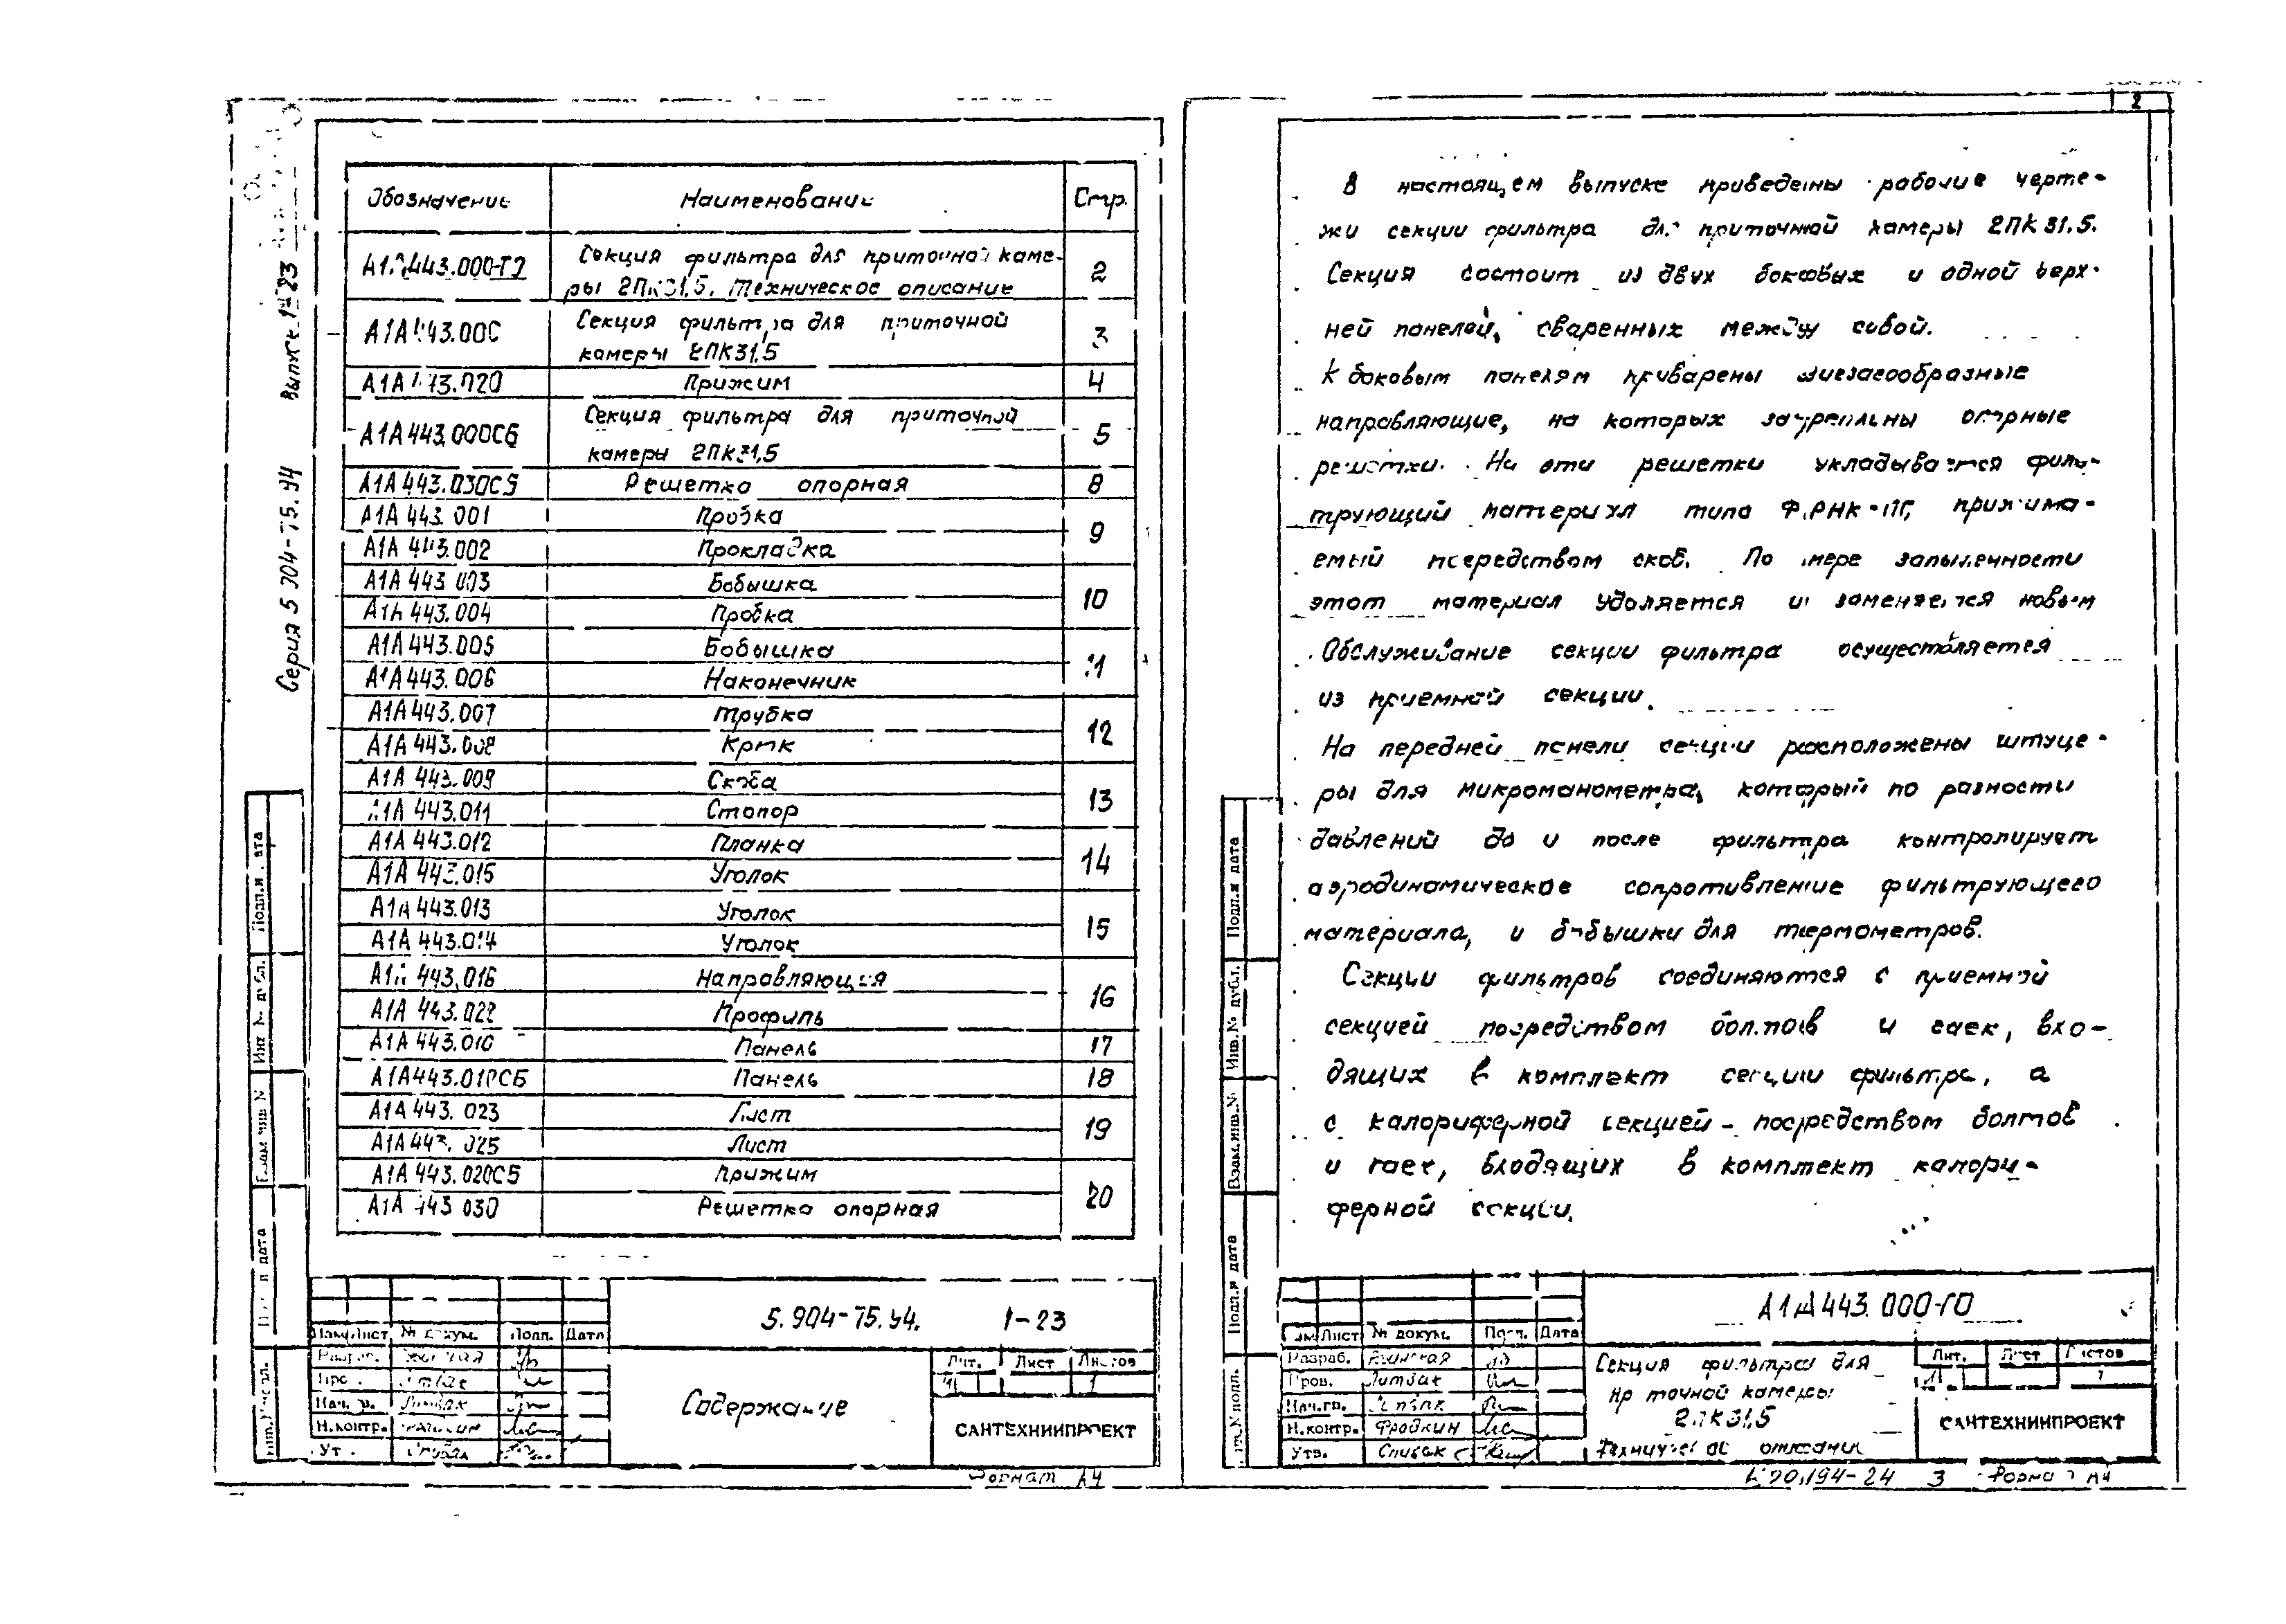 Серия 5.904-75.94 Выпуск 1-23
Обозначение Наименование Стр.
А1А443.000-ТО Секция фильтра для приточной каме-
ры 2ПК31,5. Техническое описание 2
А1А443.000 Секция фильтра для приточной
камеры 2ПК31,5 3
А1А443.020 Прижим 4
А1А443.000СБ Секция фильтра для приточной
камеры 2ПК31,5 5
А1А443.030СБ Решетка опорная 8
А1А443.001 Пробка 9
А1А443.002 Прокладка
А1А443.003 Бобышка 10
А1А443.004 Пробка
А1А443.005 Бобышка 11
А1А443.006 Наконечник
А1А443.007 Трубка 12
А1А443.008 Крюк
А1А443.009 Скоба 13
А1А443.011 Стопор
А1А443.012 Планка 14
А1А443.015 Уголок
А1А443.013 Уголок 15
А1А443.014 Уголок
А1А443.016 Направляющая 16
А1А443.022 Профиль
А1А443.010 Панель 17
А1А443.010СБ Панель 18
А1А443.023 Лист 19
А1А443.025 Лист
А1А443.020СБ Прижим 20
А1А443.030 Решетка опорная
5.904-75.94. 1-23
Лист № докум. Подп. Дата
Разраб.
Пров. Литвак
Нач.гр. Литвак
Н.контр. Фродкин
Утв. Спивак
Содержание
Лит. Лист Листов
И 1
САНТЕХНИИПРОЕКТ
Формат А4
2
В настоящем выпуске приведены рабочие черте-
жи секции фильтра для приточной камеры 2ПК31.5.
Секция состоит из двух боковых и одной верх-
ней панелей, сваренных между собой.
К боковым панелям приварены зигзагообразные
направляющие, на которых закреплены опорные
решетки. На эти решетки укладывается филь-
трующий материал типа ФРНК-ПГ, прижима-
емый посредством скоб. По мере запыленности
этот материал удаляется и заменяется новым
Обслуживание секции фильтра осуществляется
из приемной секции.
На передней панели секции расположены штуце-
ры для микроманометра, который по разности
давлений до и после фильтра контролирует
аэродинамическое сопротивление фильтрующего
материала, и бобышки для термометров.
Секции фильтров соединяются с приемной
секцией посредством болтов и гаек, вхо-
дящих в комплект секции фильтра, а
с калориферной секцией - посредством болтов
и гаек, входящих в комплект калори-
ферной секции.
Подп.и дата
Инв.№ дубл.
Взам.инв.№
Подп.и дата
Инв.№ подл.
А1А443.000-ТО
Изм Лист № докум. Подп. Дата
Разраб.
Пров. Литвак
Нач.гр. Литвак
Н.контр. Фродкин
Утв. Спивак
Секция фильтра для
приточной камеры
2ПК31,5
Техническое описание
Лит. Лист Листов
И 1
САНТЕХНИИПРОЕКТ
20194-24 3 Формат А4